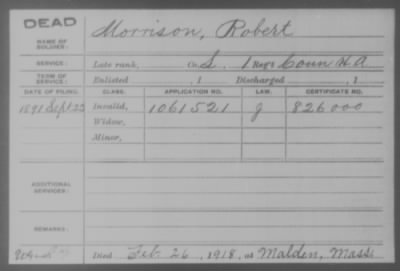 DEAD
NAME OF SOLDIER: Morrison, Robert
SERVICE: Late rank, Co. L, 1 Reg't Conn H A
TERM OF SERVICE: Enlisted , 1 Discharged , 1
DATE OF FILING. CLASS. APPLICATION NO. LAW. CERTIFICATE NO.
1891 Sept 23 Invalid, 1061521 J 826000
Widow,
Minor,
ADDITIONAL SERVICES:
REMARKS:
Died Feb 26, 1918, at Malden, Mass